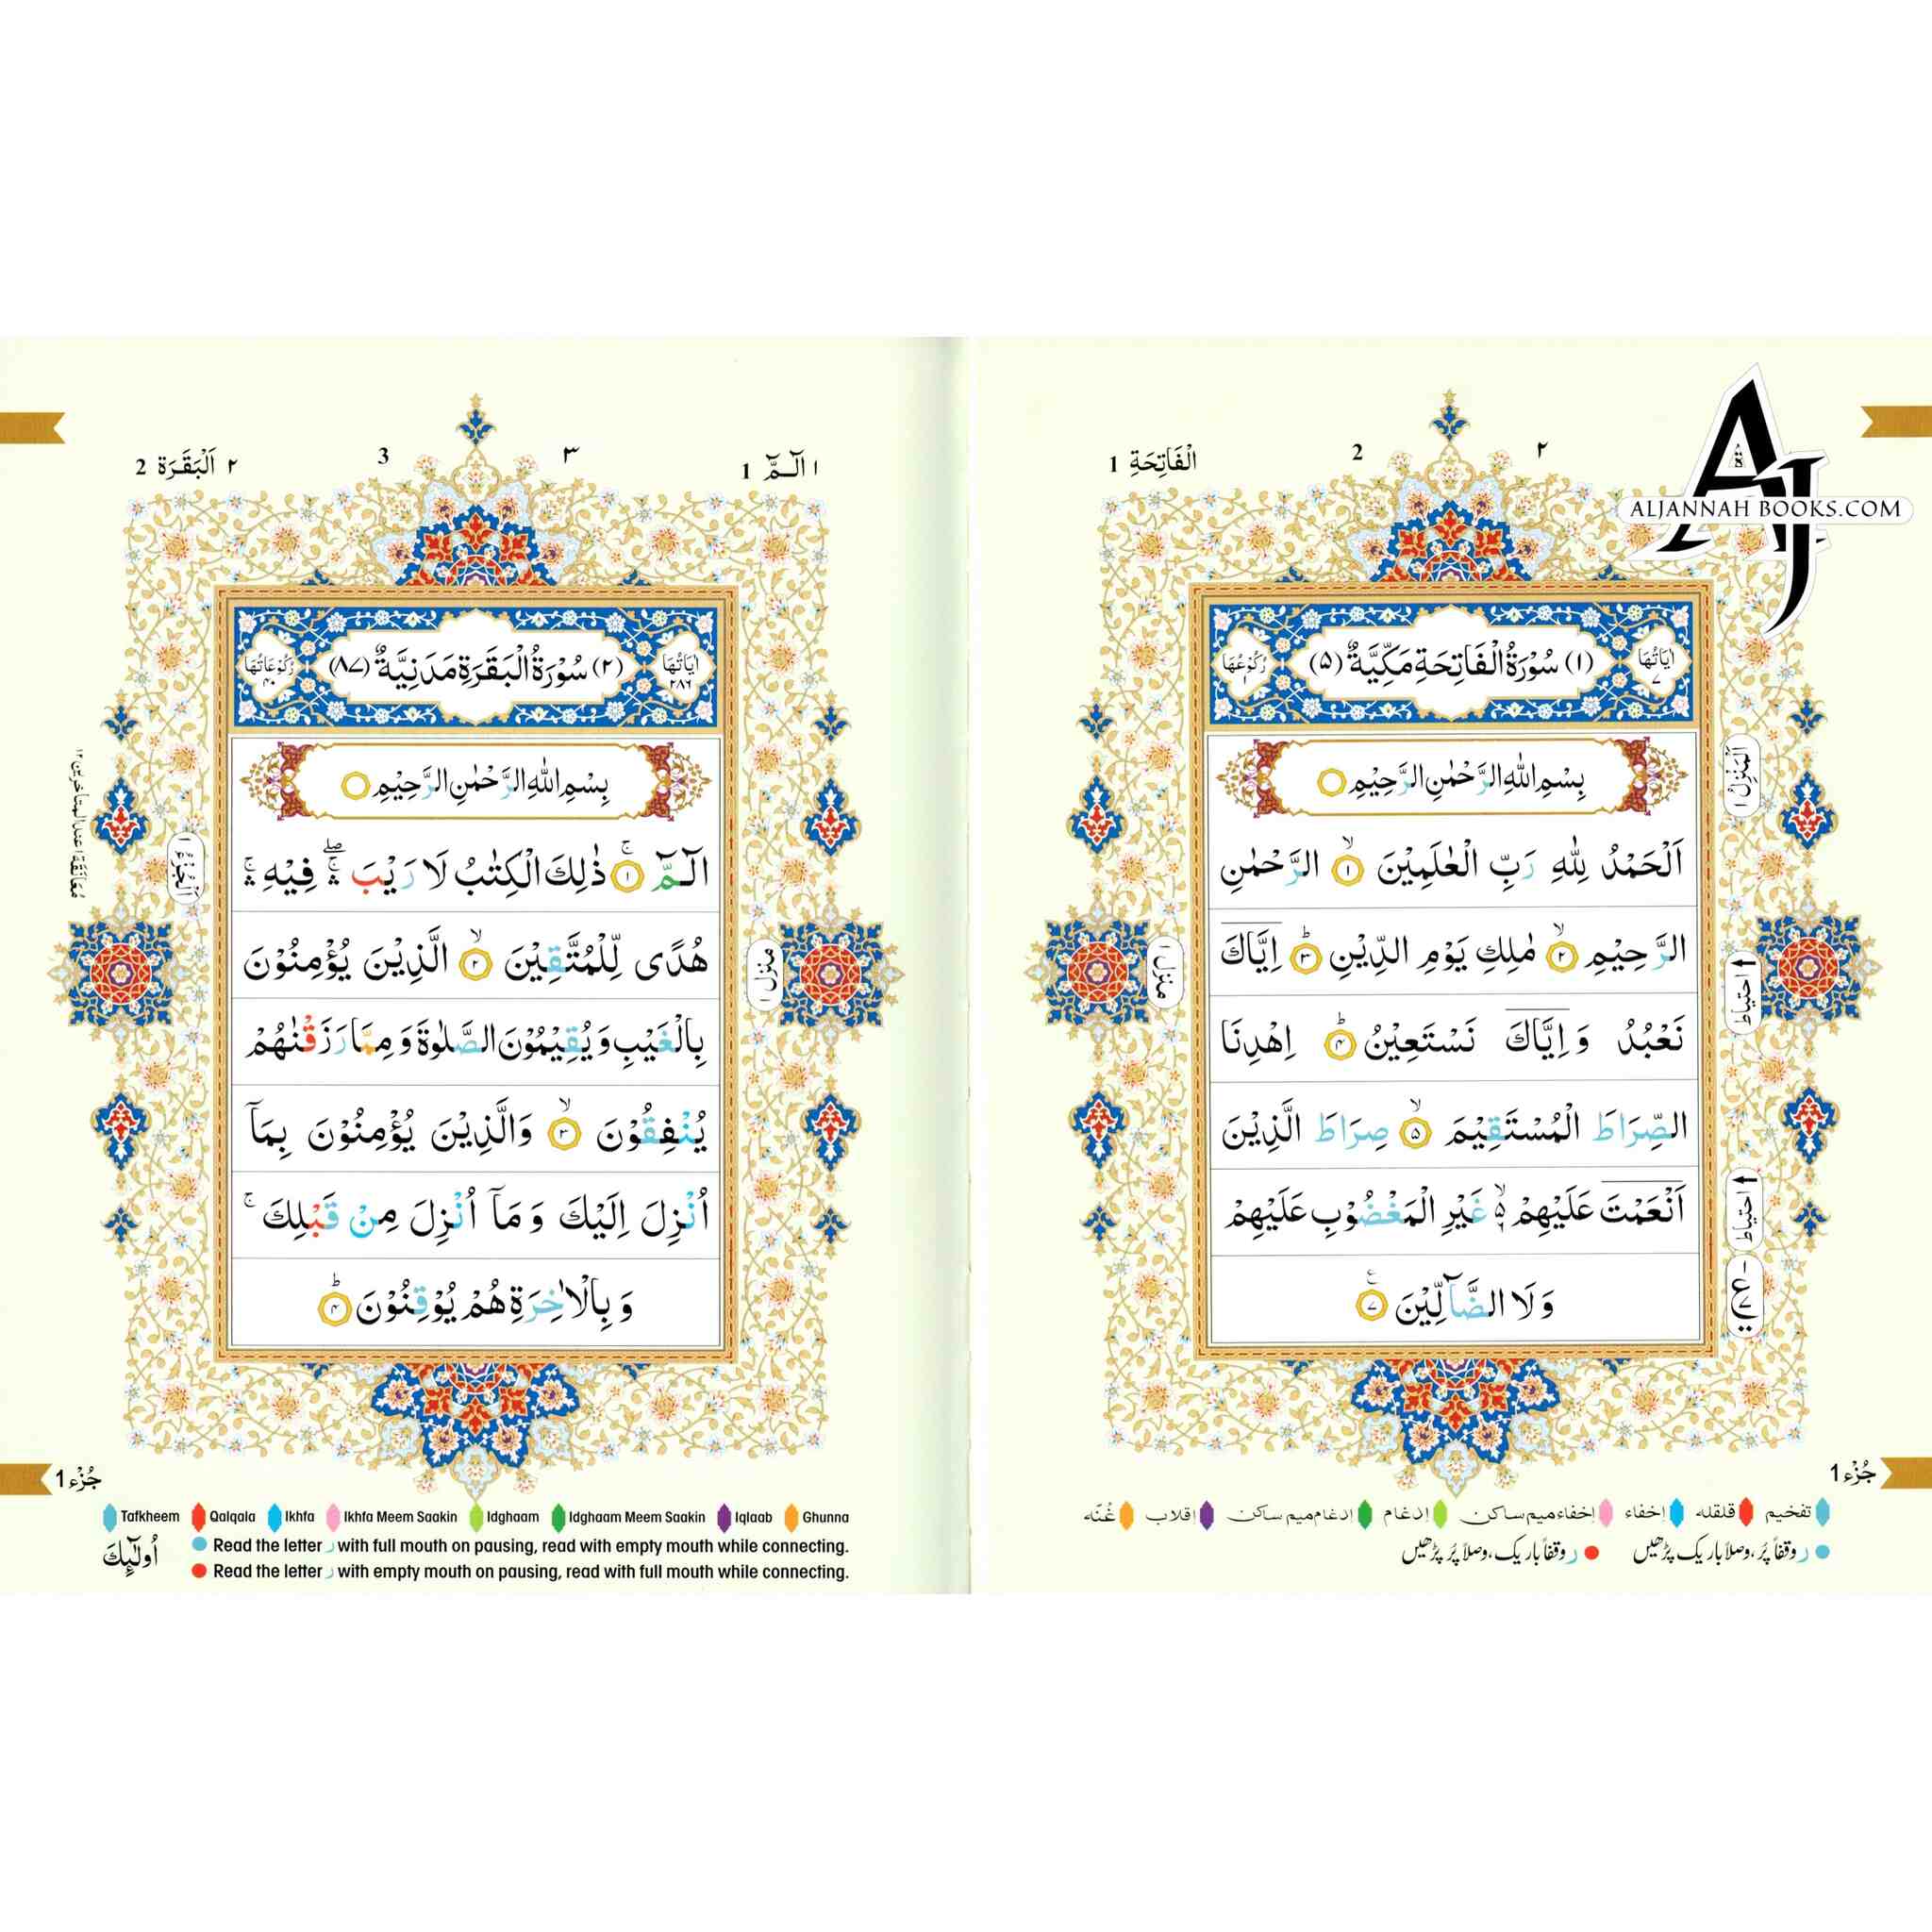 الْفَاتِحَةِ 1
2
۲
ALJANNAH BOOKS.COM
اٰيَاتُهَا ۷
(۱) سُوْرَةُ الْفَاتِحَةِ مَكِّيَّةٌ (۵)
رُكُوْعُهَا ۱
بِسْمِ اللّٰهِ الرَّحْمٰنِ الرَّحِيْمِ
اَلْحَمْدُ لِلّٰهِ رَبِّ الْعٰلَمِيْنَ ۙ﴿۱﴾ الرَّحْمٰنِ
الرَّحِيْمِ ۙ﴿۲﴾ مٰلِكِ يَوْمِ الدِّيْنِ ؕ﴿۳﴾ اِيَّاكَ
نَعْبُدُ وَ اِيَّاكَ نَسْتَعِيْنُ ؕ﴿۴﴾ اِهْدِنَا
الصِّرَاطَ الْمُسْتَقِيْمَ ۙ﴿۵﴾ صِرَاطَ الَّذِيْنَ
اَنْعَمْتَ عَلَيْهِمْ ۙ۵ غَيْرِ الْمَغْضُوْبِ عَلَيْهِمْ
وَ لَا الضَّآلِّيْنَ ﴿۷﴾
اَلْمَنْزِلُ ۱
احتياط
احتياط
منزل ۱
جُزْء 1
تفخیم قلقلہ اِخفاء اِخفاء میم ساکن اِدغام اِدغام میم ساکن اِقلاب غُنّہ
ر وقفاً پُر، وصلاً باریک پڑھیں ر وقفاً باریک، وصلاً پُر پڑھیں
۱ الٓـمّٓ 1
۳
3
۲ اَلْبَقَرَة 2
اٰيَاتُهَا ۲۸۶
(۲) سُوْرَةُ الْبَقَرَةِ مَدَنِيَّةٌ (۸۷)
رُكُوْعَاتُهَا ۴۰
بِسْمِ اللّٰهِ الرَّحْمٰنِ الرَّحِيْمِ
الٓـمّٓ ۚ﴿۱﴾ ذٰلِكَ الْكِتٰبُ لَا رَيْبَ ۖۛۚ فِيْهِ ۛۚ
هُدًى لِّلْمُتَّقِيْنَ ۙ﴿۲﴾ الَّذِيْنَ يُؤْمِنُوْنَ
بِالْغَيْبِ وَ يُقِيْمُوْنَ الصَّلٰوةَ وَ مِمَّا رَزَقْنٰهُمْ
يُنْفِقُوْنَ ۙ﴿۳﴾ وَالَّذِيْنَ يُؤْمِنُوْنَ بِمَاۤ
اُنْزِلَ اِلَيْكَ وَ مَاۤ اُنْزِلَ مِنْ قَبْلِكَ ۚ
وَ بِالْاٰخِرَةِ هُمْ يُوْقِنُوْنَ ؕ﴿۴﴾
منزل ۱
اَلْجُزْءُ ۱
مُعَانَقَة ۱ عند المتأخرين ۱۲
جُزْء 1
Tafkheem Qalqala Ikhfa Ikhfa Meem Saakin Idghaam Idghaam Meem Saakin Iqlaab Ghunna
Read the letter ر with full mouth on pausing, read with empty mouth while connecting.
Read the letter ر with empty mouth on pausing, read with full mouth while connecting.
اُولٰٓئِكَ